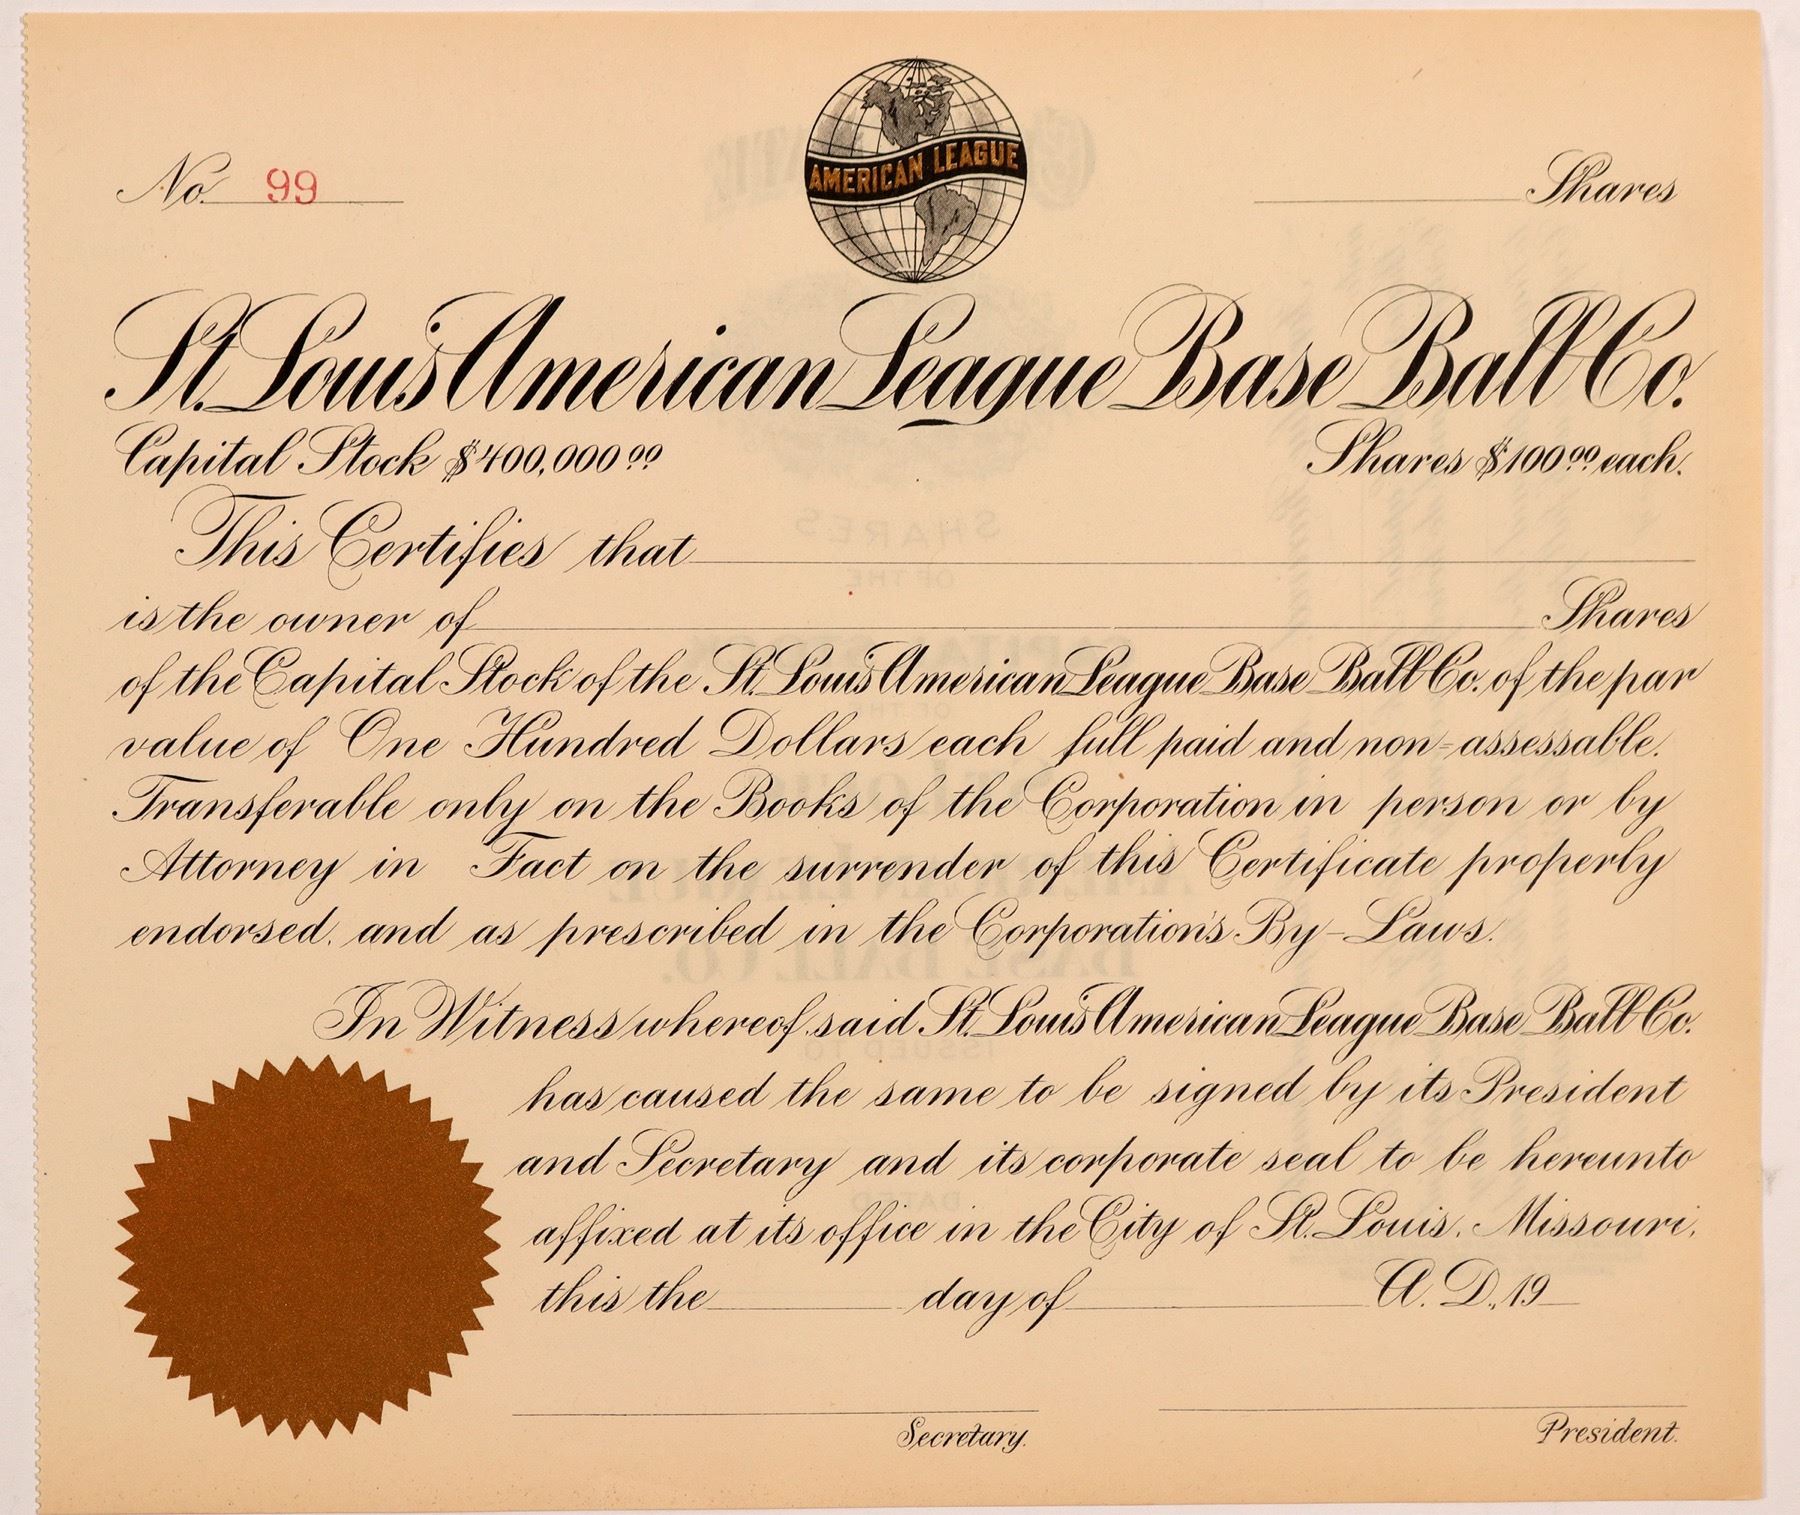 No. 99
AMERICAN LEAGUE
Shares
St. Louis American League Base Ball Co.
Capital Stock $400,000.00
Shares $100.00 each.
This Certifies that
is the owner of Shares
of the Capital Stock of the St. Louis American League Base Ball Co. of the par
value of One Hundred Dollars each full paid and non-assessable.
Transferable only on the Books of the Corporation in person or by
Attorney in Fact on the surrender of this Certificate properly
endorsed, and as prescribed in the Corporation's By-Laws.
In Witness whereof, said St. Louis American League Base Ball Co.
has caused the same to be signed by its President
and Secretary and its corporate seal to be hereunto
affixed at its office in the City of St. Louis, Missouri,
this the day of A. D., 19
Secretary.
President.